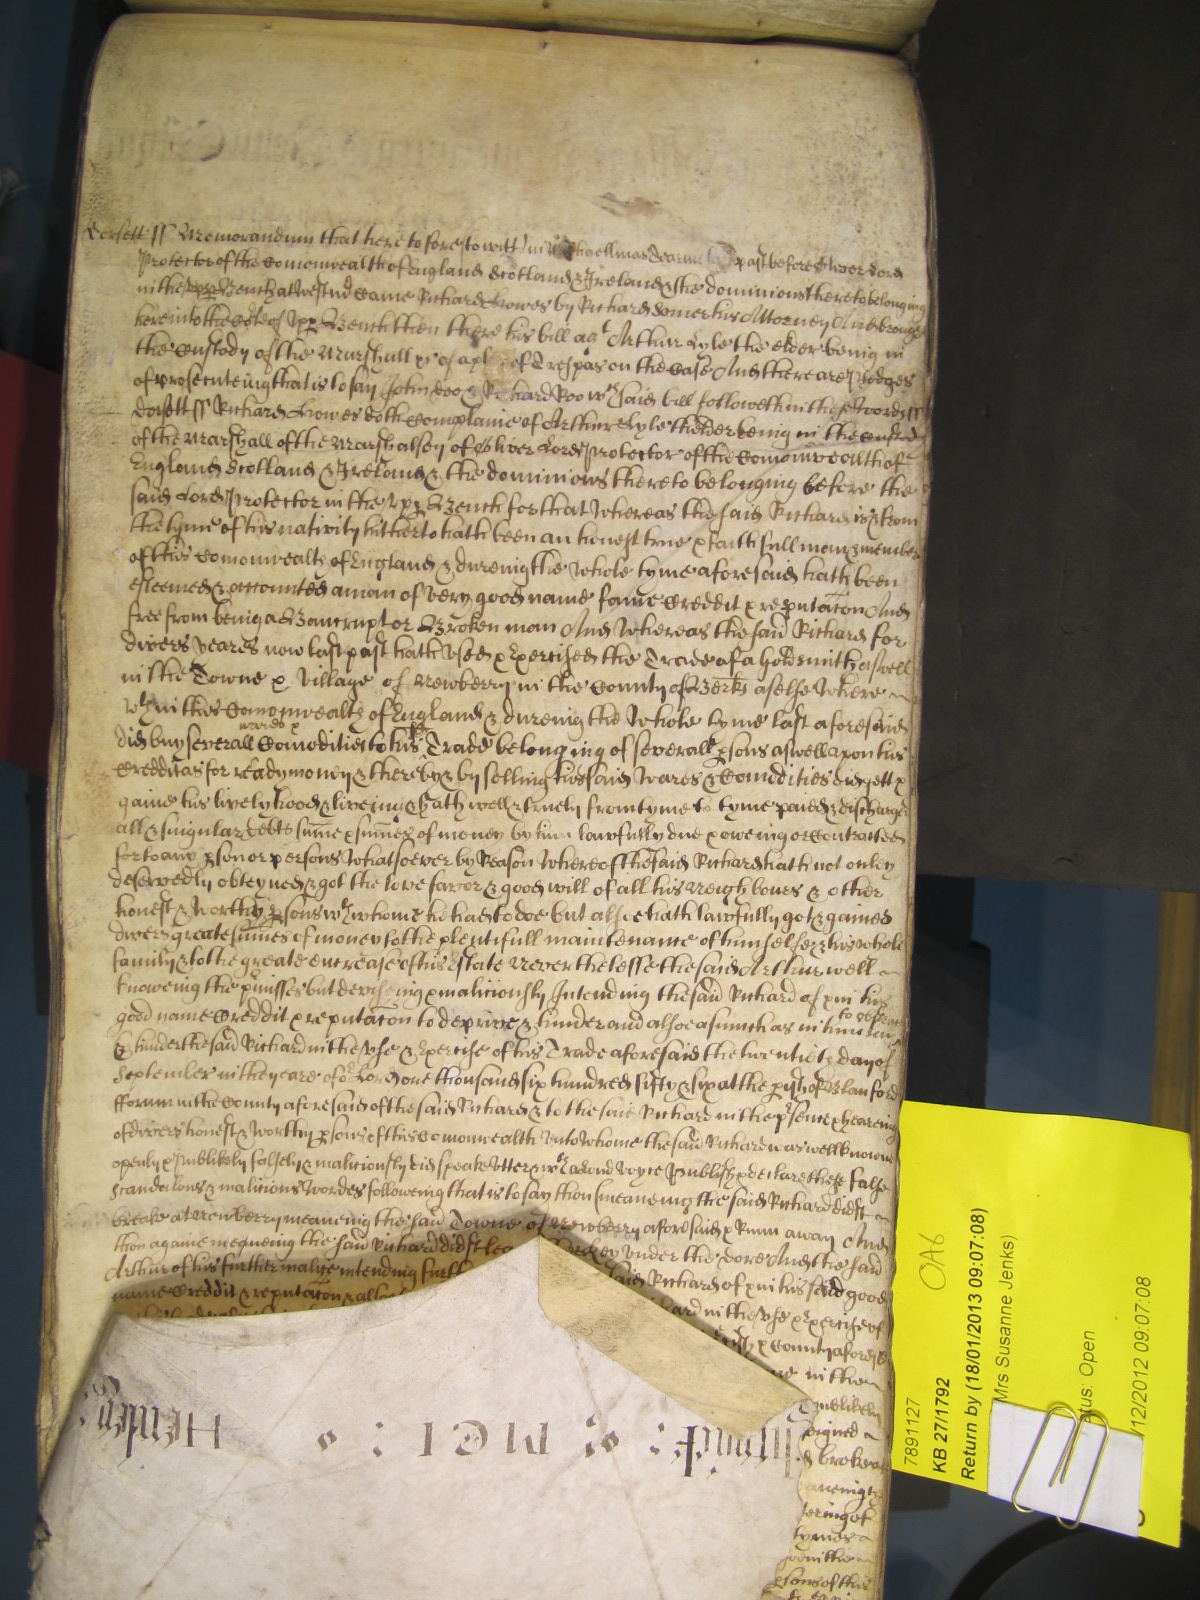 Dorsett ss Memorandum that heretofore (to witt) in Michaellmas Tearme past before Oliver Lord
Protector of the Comonwealth of England Scotland & Ireland & the dominions thereto belonging
in the upp Bench at Westm̃ Came Richard Lowes by Richard his Attorney And brought
here into the Court of upp Bench then there his bill agt Arthur Lyle the elder being in
the Custody of the Marshall &c of a plea of Trespas on the Case And there are Pledges
of prosecuteing that is to say John Doo & Richard Roo wch said bill followeth in these words ss
Dorsett ss Richard Lowes doth Complaine of Arthure Lyle the elder being in the Custody
of the Marshall of the Marshalsey of Oliver Lord Protector of the Comonwealth of
England Scotland & Ireland & the dominions thereto belonging before the
said Lord Protector in the upp Bench for that Whereas the said Richard is & from
the tyme of his nativity hitherto hath been an honest true & faithfull man & member
of this Comonwealth of England & dureing the whole tyme aforesaid hath been
esteemed & accounted a man of very good name fame Creddit & reputac̃on And
free from being a Bancrupt or Broken man And Whereas the said Richard for
divers yeares now last past hath used & Exercised the Trade of a Goldsmith aswell
in the Towne & Village of Newberry in the County of Berks as else where
wth in this Comonwealth of England & dureing the whole tyme last aforesaid
did buy severall wares & Comodities to his sd Trade belonging of severall psons aswell upon his
Creddit as for ready money & thereby & by selling his said Wares & Comodities did gett &
gaine his livelyhood & liveing & hath well & truely from tyme to tyme paied & discharged
all & singular debts sum̃e & sum̃es of money by him lawfully due & oweing or Contracted
for to any pson or persons whatsoever by Reason whereof the said Richard hath not onley
deservedly obteyned & got the love favor & good will of all his Neighbours & other
honest & worthy psons wth whome he had to doe but alsoe hath lawfully got & gained
divers greate sum̃es of money to the plentifull maintenance of himselfe & his whole
family & to the greate encrease of his Estate Neverthelesse the said Arthur well
knoweing the pmisses but deviseing & maliciously Intending the said Richard of & in his
good name Creddit & reputac̃on to deprive & hinder and alsoe asmuch as in him lay to
& hinder the said Richard in the use & Exercise of his Trade aforesaid the twentieth day of
September in the yeare of or Lord one thousand six hundred fifty & six at the pish of Blanford
fforum in the County aforesaid of the said Richard & to the said Richard in the psence & heareing
of divers honest & worthy psons of this Comonwealth unto whome the said Richard was well knowne
openly & Publikely falsely & maliciously did speake utter & wth a loud voyce Publish & declare these false
scandalous & malicious Wordes following that is to say thou (meaneing the said Richard) didst
breake at Newberry meaneing the said Towne of Newberry aforesaid & Runn away And
thou againe meaneing the said Richard didst key under the dore And the said
Arthur of his further malice intending said Richard of & in his said good
name Creddit & reputac̃on & in the use & Exercise of
& County aforesd
in the
Publikely
& broken
meaneing
heareing of
tymes
in the
psons of this
KB 27/1792
7891127
OA6
Return by (18/01/2013 09:07:08)
Mrs Susanne Jenks)
atus: Open
/12/2012 09:07:08